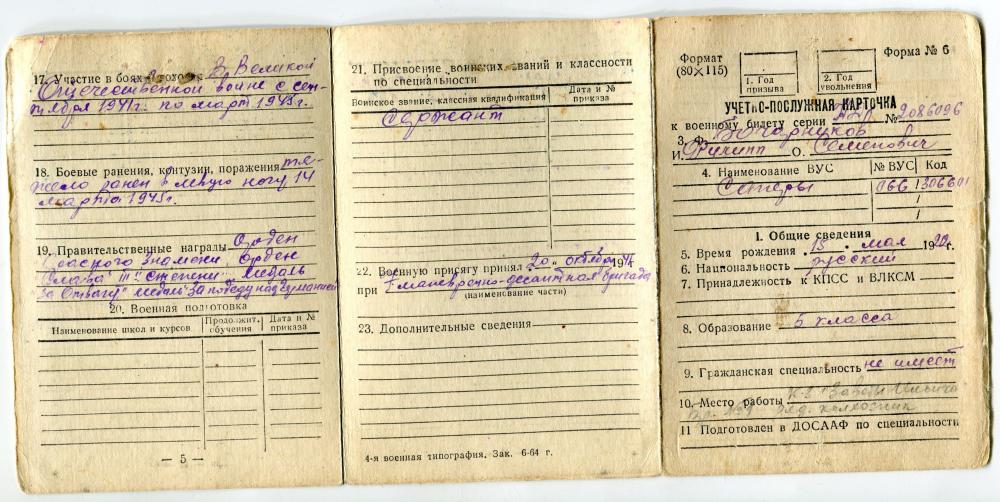 17. Участие в боях, походах В Великой
Отечественной войне с сен-
тября 1941г. по март 1945г.
18. Боевые ранения, контузии, поражения тя-
жело ранен в левую ногу 14
марта 1945г.
19. Правительственные награды Орден
Красного Знамени, Орден
"Слава" III степени Медаль
"За Отвагу" медаль "За победу над Германией"
20. Военная подготовка
Наименование школ и курсов
Продолжит. обучения
Дата и № приказа
— 5 —
21. Присвоение воинских званий и классности
по специальности
Воинское звание, классная квалификация
Дата и № приказа
Сержант
22. Военную присягу принял „20„ октября 194
при маневренно-десантная бригада
(наименование части)
23. Дополнительные сведения
4-я военная типография. Зак. 6-64 г.
Формат
(80×115)
1. Год призыва
2. Год увольнения
Форма № 6
УЧЕТНО-ПОСЛУЖНАЯ КАРТОЧКА
к военному билету серии № 2086096
3. Ф. Бочарников
И. Филипп О. Семенович
4. Наименование ВУС
№ ВУС
Код
Саперы
066
306601
I. Общие сведения
5. Время рождения 15 мая 1922г.
6. Национальность русский
7. Принадлежность к КПСС и ВЛКСМ
8. Образование 5 класса
9. Гражданская специальность не имеет
10. Место работы к-з "Заветы Ильича"
колхозник
11 Подготовлен в ДОСААФ по специальности